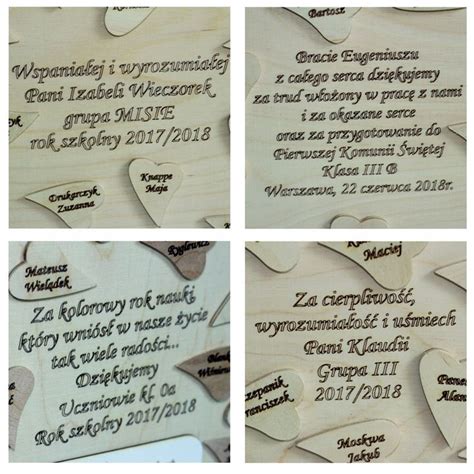 Wspaniałej i wyrozumiałej
Pani Izabeli Wieczorek
grupa MISIE
rok szkolny 2017/2018
Drukarczyk
Zuzanna
Knappe
Maja
Bartosz
Bracie Eugeniuszu
z całego serca dziękujemy
za trud włożony w pracę z nami
i za okazane serce
oraz za przygotowanie do
Pierwszej Komunii Świętej
Klasa III B
Warszawa, 22 czerwca 2018r.
Mateusz
Wielądek
Za kolorowy rok nauki,
który wniósł w nasze życie
tak wiele radości...
Dziękujemy
Uczniowie kl. 0a
Rok szkolny 2017/2018
Maciej
Za cierpliwość,
wyrozumiałość i uśmiech
Pani Klaudii
Grupa III
2017/2018
Moskwa
Jakub